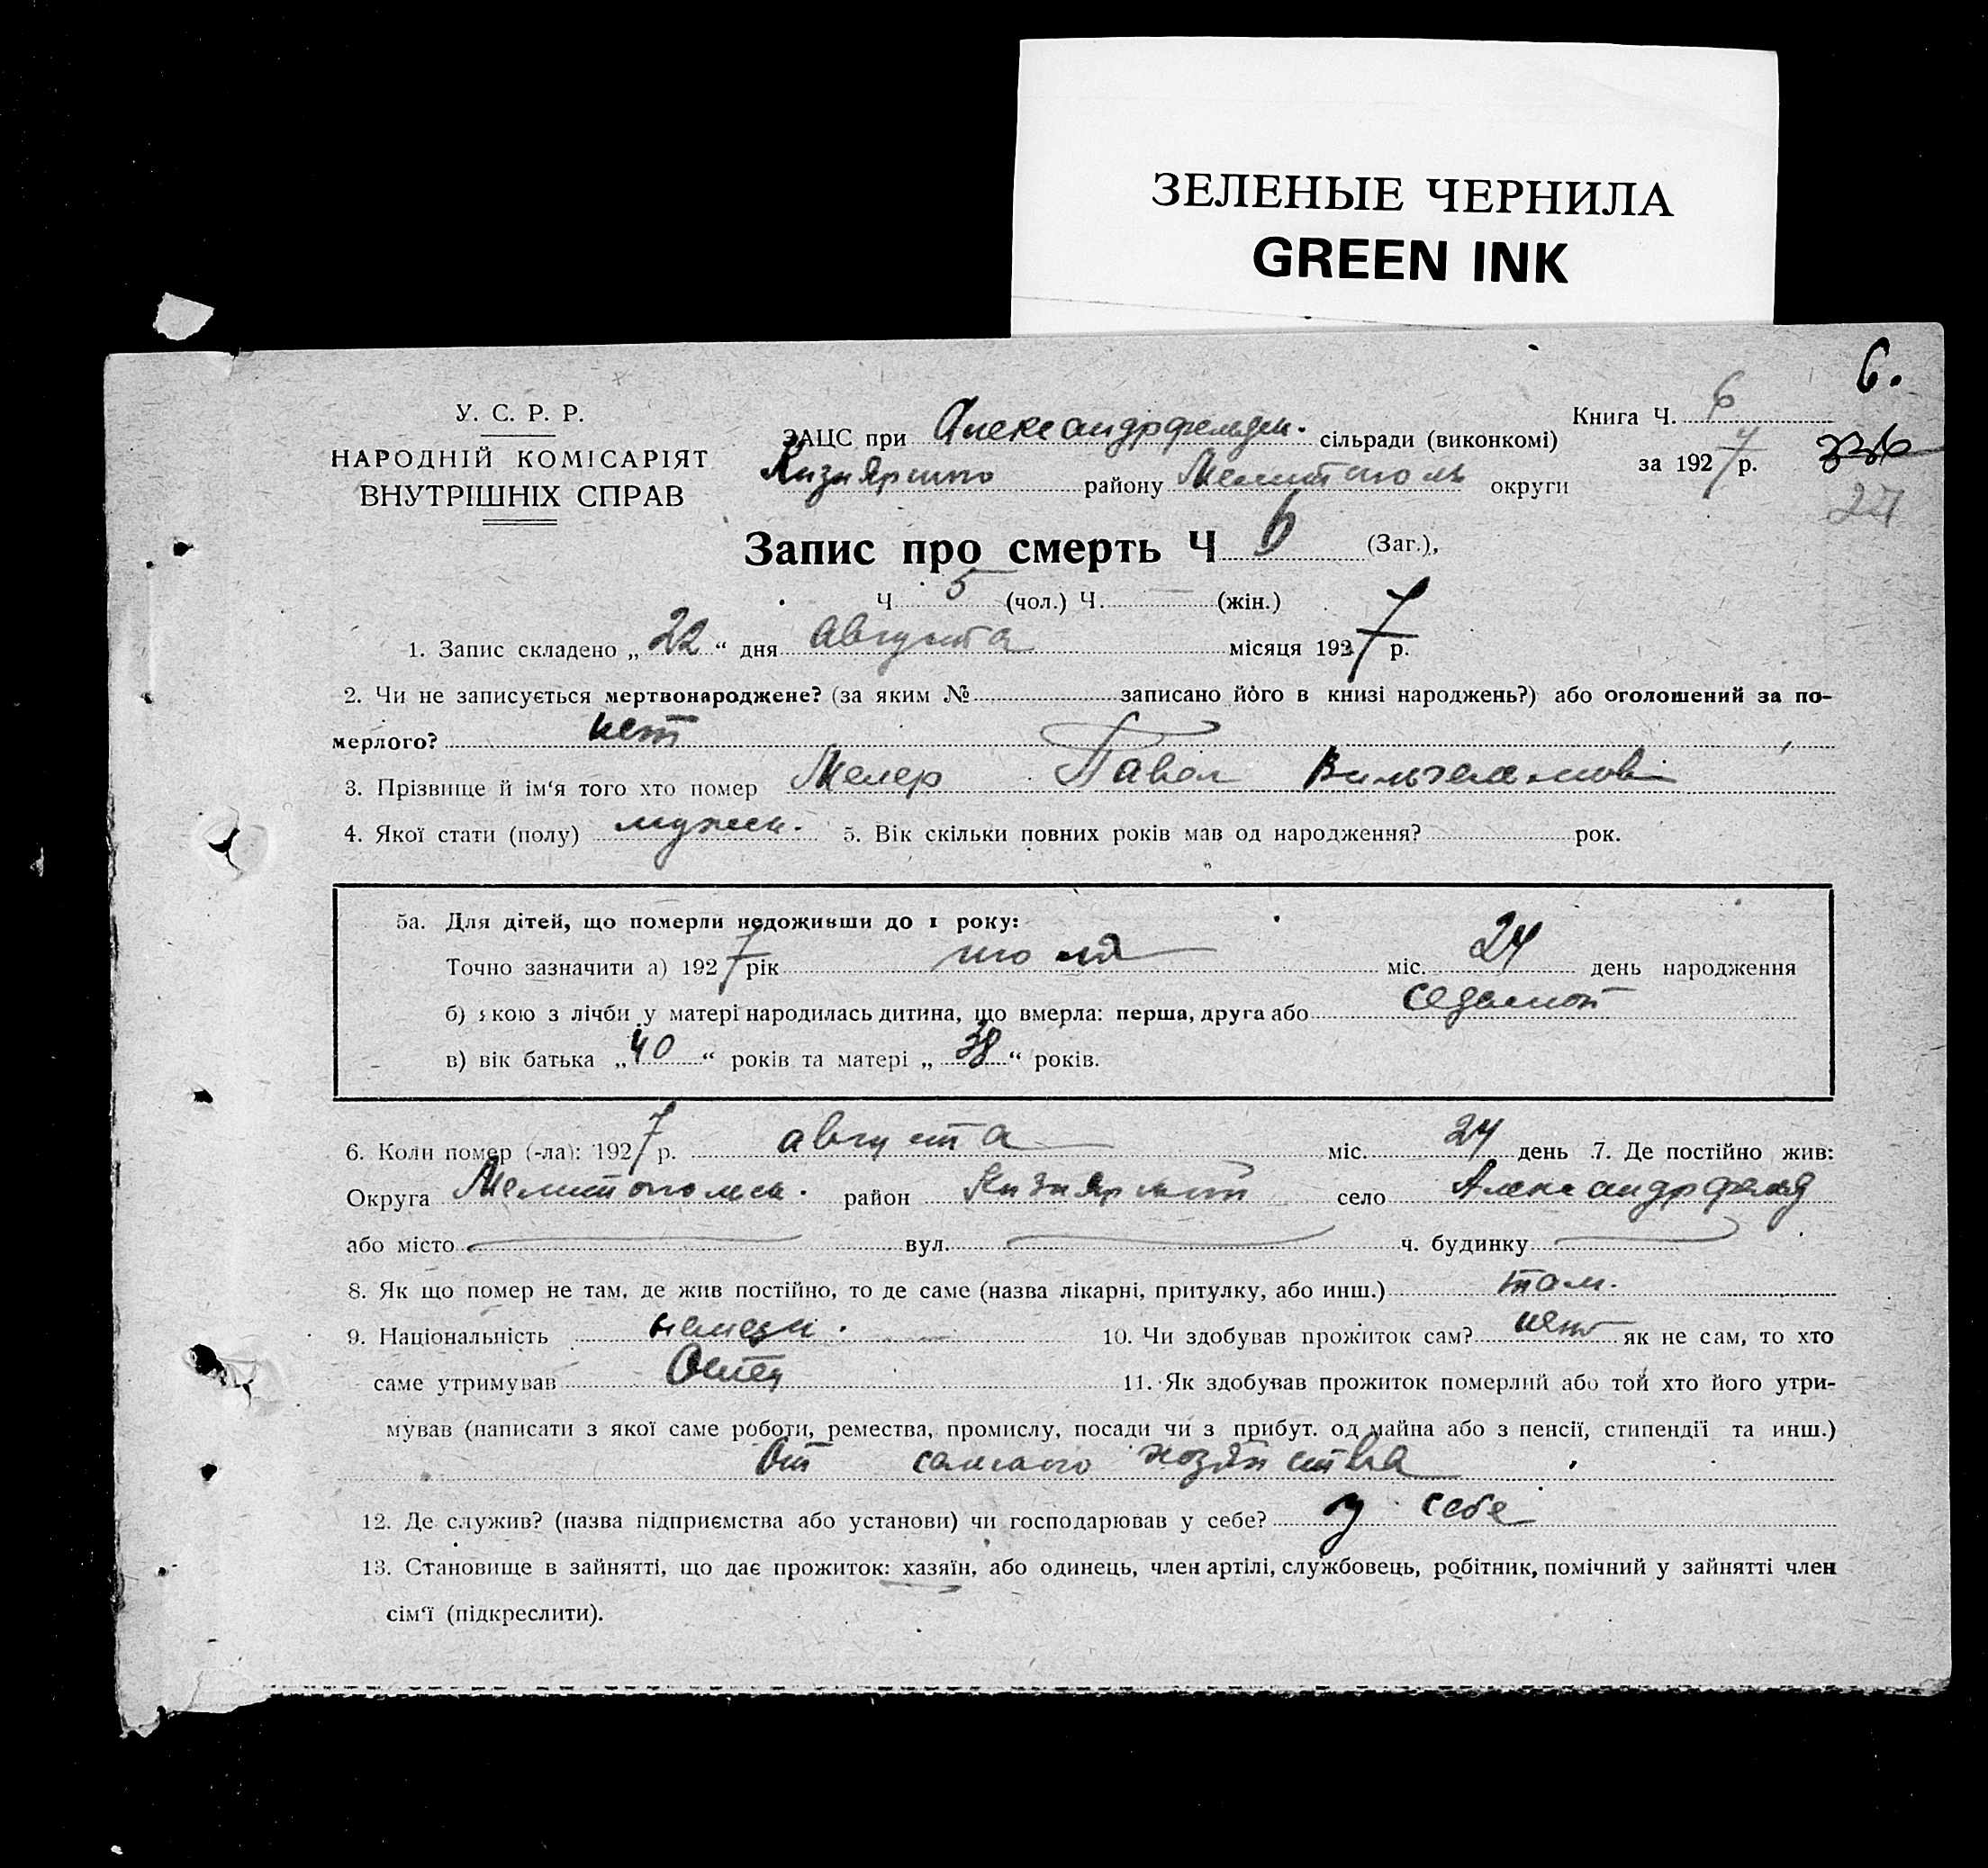 ЗЕЛЕНЫЕ ЧЕРНИЛА
GREEN INK
6.
У. С. Р. Р.
НАРОДНІЙ КОМІСАРІЯТ
ВНУТРІШНІХ СПРАВ
Книга Ч. 6
за 1927 р. 336
27
ЗАЦС при Александрфельдск. сільради (виконкомі)
району Мелитополь округи
Запис про смерть Ч 6 (Заг.),
Ч 5 (чол.) Ч. — (жін.)
1. Запис складено „ 22 “ дня Августа місяця 1927 р.
2. Чи не записується мертвонароджене? (за яким № записано його в книзі народжень?) або оголошений за по-
мерлого? нет
3. Прізвище й ім‘я того хто помер Мелер Павел Вильгельмов
4. Якої стати (полу) мужск. 5. Вік скільки повних років мав од народження? рок.
5а. Для дітей, що померли недоживши до 1 року:
Точно зазначити а) 1927 рік июля міс. 24 день народження
б) якою з лічби у матері народилась дитина, що вмерла: перша, друга або седьмой
в) вік батька „ 40 “ років та матері „ 38 “ років.
6. Коли помер (-ла): 1927 р. августа міс. 24 день 7. Де постійно жив:
Округа Мелитопольск. район Кизиярский село Александрфельд
або місто вул. ч. будинку
8. Як що помер не там, де жив постійно, то де саме (назва лікарні, притулку, або инш.) там.
9. Національність немецк. 10. Чи здобував прожиток сам? нет як не сам, то хто
саме утримував Отец 11. Як здобував прожиток померлий або той хто його утри-
мував (написати з якої саме роботи, ремества, промислу, посади чи з прибут. од майна або з пенсії, стипендії та инш.)
От сельского хозяйства
12. Де служив? (назва підприємства або установи) чи господарював у себе? у себе
13. Становище в зайнятті, що дає прожиток: хазяїн, або одинець, член артілі, службовець, робітник, помічний у зайнятті член
сім‘ї (підкреслити).